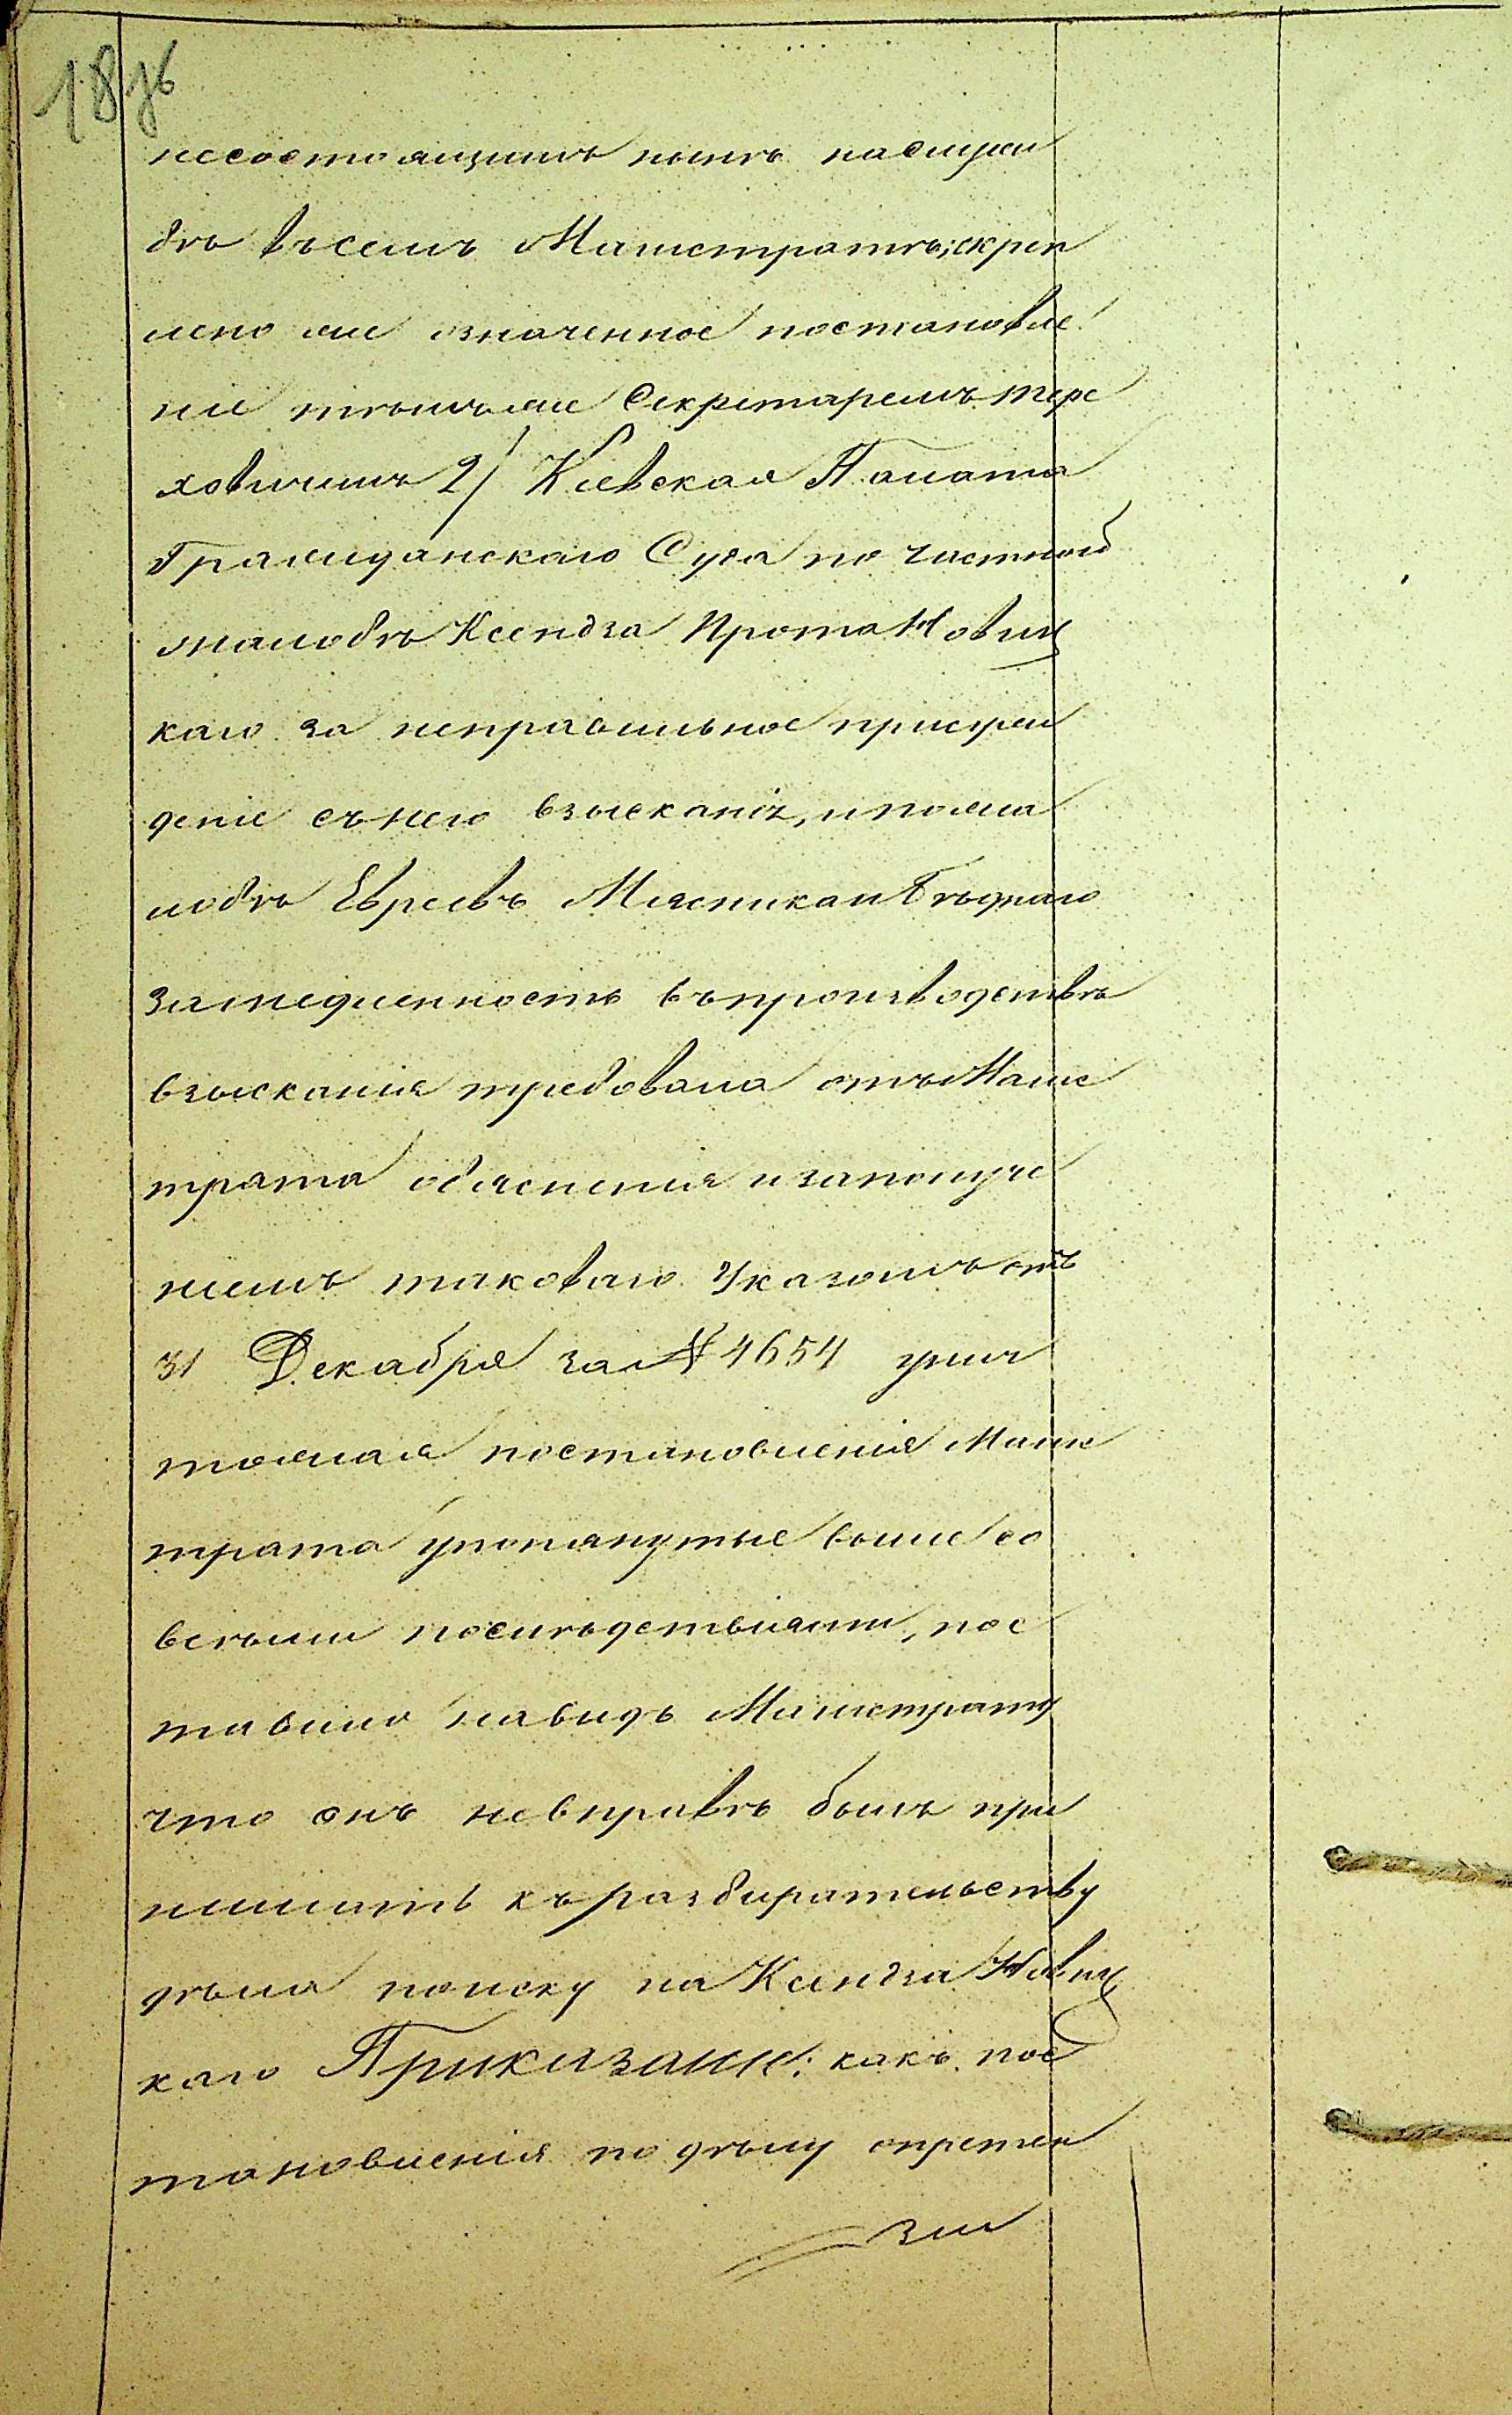 18 зв
несостоящимъ нынѣ на служ
бѣ въ семъ Магистратѣ; скреп
лено же означенное постановле
ніе тѣмъ же Секретаремъ Тере
ховичемъ 2/ Кіевская Палата
Гражданскаго Суда по частной
жалобѣ Ксендза Прота Новиц
каго за неправильное присуж
деніе съ него взысканія, и по жа
лобѣ Евреевъ Мясника и Бѣднаго
за медленность въ производствѣ
взысканія требовала отъ Магис
трата обясненія и за получе
ніемъ таковаго Указомъ отъ
31 Декабря за № 4654 унич
тожая постановленія Магис
трата упомянутые выше со
всѣми послѣдствіями, пос
тавило на видъ Магистрату
что онъ не вправѣ былъ при
нимать къ разбирательству
дѣла по иску на Ксендза Новиц
каго Приказали: какъ пос
тановленія по дѣлу о претен
зіи